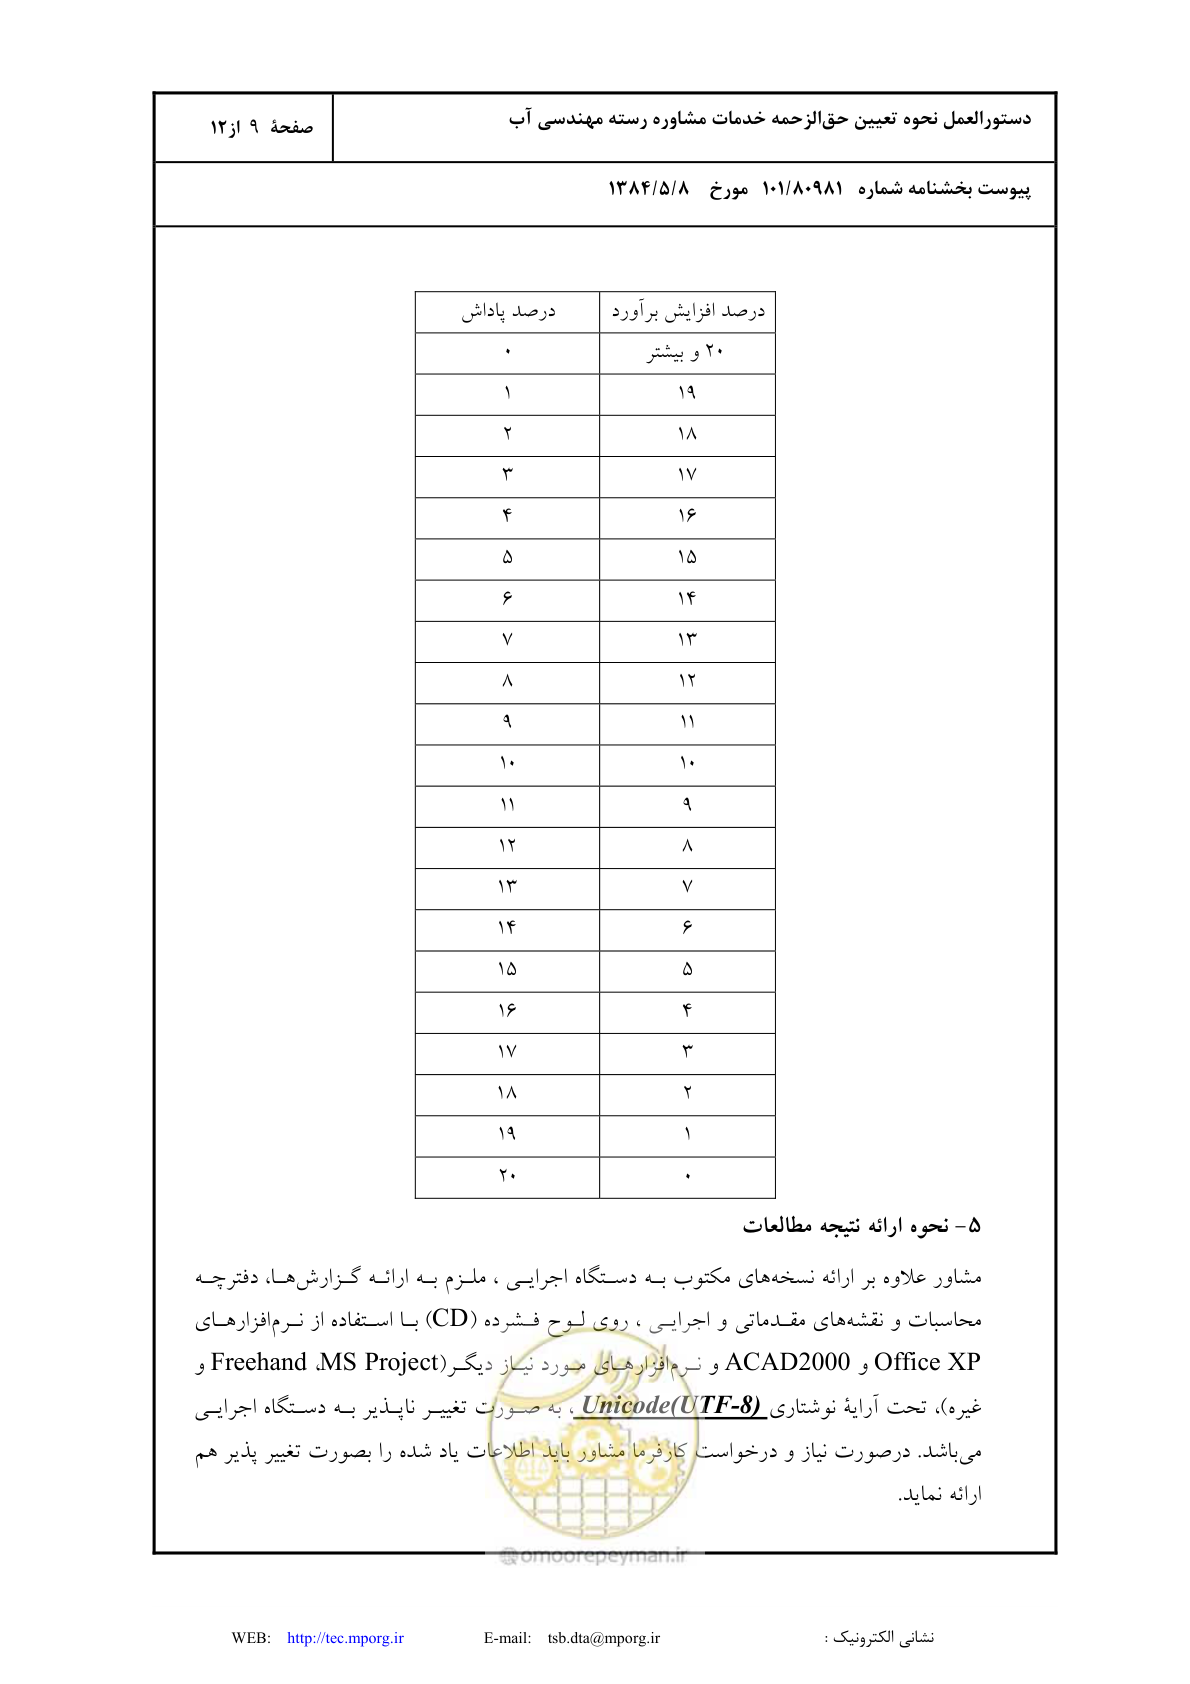 دستورالعمل نحوه تعیین حق‌الزحمه خدمات مشاوره رسته مهندسی آب
صفحهٔ ۹ از۱۲
پیوست بخشنامه شماره ۱۰۱/۸۰۹۸۱ مورخ ۱۳۸۴/۵/۸
درصد افزایش برآورد درصد پاداش
۲۰ و بیشتر ۰
۱۹ ۱
۱۸ ۲
۱۷ ۳
۱۶ ۴
۱۵ ۵
۱۴ ۶
۱۳ ۷
۱۲ ۸
۱۱ ۹
۱۰ ۱۰
۹ ۱۱
۸ ۱۲
۷ ۱۳
۶ ۱۴
۵ ۱۵
۴ ۱۶
۳ ۱۷
۲ ۱۸
۱ ۱۹
۰ ۲۰
۵- نحوه ارائه نتیجه مطالعات
مشاور علاوه بر ارائه نسخه‌های مکتوب به دستگاه اجرایی ، ملزم به ارائه گزارش‌ها، دفترچه
محاسبات و نقشه‌های مقدماتی و اجرایی ، روی لوح فشرده (CD) با استفاده از نرم‌افزارهای
Office XP و ACAD2000 و نرم‌افزارهای مورد نیاز دیگر(MS Project، Freehand و
غیره)، تحت آرایهٔ نوشتاری Unicode(UTF-8) ، به صورت تغییر ناپذیر به دستگاه اجرایی
می‌باشد. درصورت نیاز و درخواست کارفرما مشاور باید اطلاعات یاد شده را بصورت تغییر پذیر هم
ارائه نماید.
@omoorepeyman.ir
نشانی الکترونیک : E-mail: tsb.dta@mporg.ir WEB: http://tec.mporg.ir